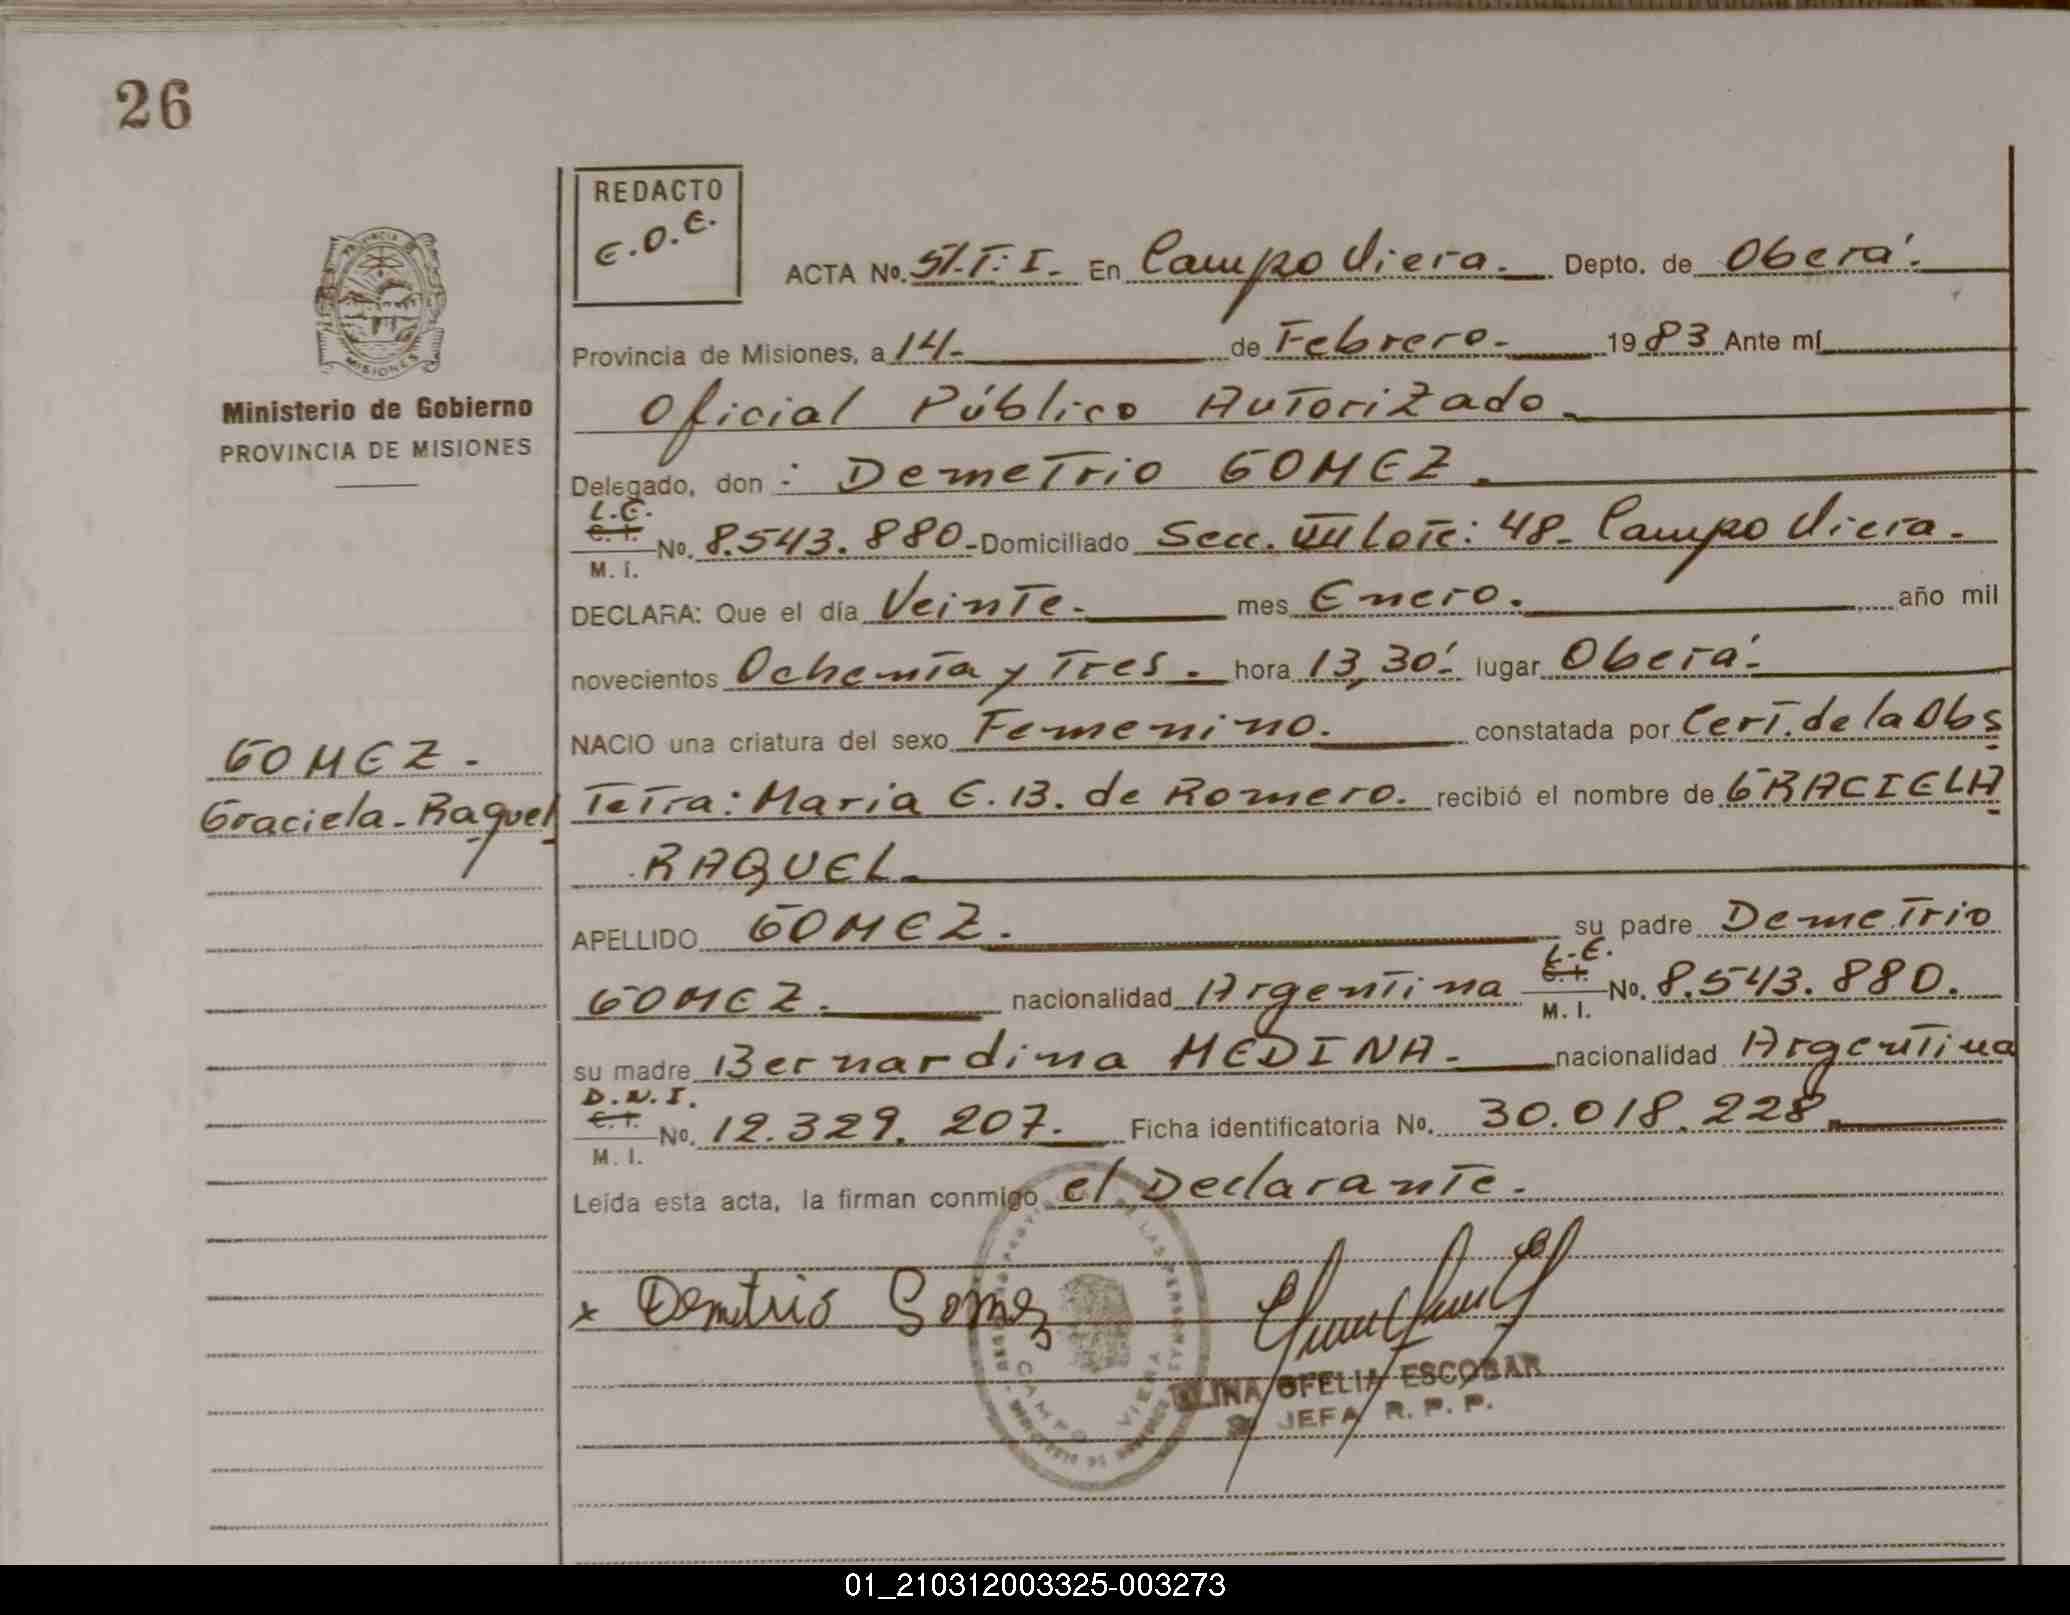 26
REDACTO
E.O.E.
PROVINCIA DE
MISIONES
Ministerio de Gobierno
PROVINCIA DE MISIONES
ACTA No. 51.T:I. En Campo Viera. Depto. de Oberá.
Provincia de Misiones, a 14- de Febrero- 1983 Ante mí
Oficial Público Autorizado
Delegado, don : Demetrio GOMEZ.
L.E.
C.I.
M. I.
No. 8.543.880- Domiciliado Secc. VIII Lote: 48- Campo Viera.
DECLARA: Que el día Veinte. mes Enero. año mil
novecientos Ochenta y Tres. hora 13,30'. lugar Oberá.
NACIO una criatura del sexo Femenino. constatada por Cert. de la Obs
GOMEZ.
Graciela-Raquel
Tetra: Maria E. B. de Romero. recibió el nombre de GRACIELA
RAQUEL.
APELLIDO GOMEZ. su padre Demetrio
GOMEZ. nacionalidad Argentina L.E. C.I. M. I. No. 8.543.880.
su madre Bernardina MEDINA. nacionalidad Argentina
D.N.I.
C.I.
M. I.
No. 12.329.207. Ficha identificatoria No. 30.018.228.
Leída esta acta, la firman conmigo el Declarante.
x Demtrio Gomez
CAMPO VIERA
ELINA OFELIA ESCOBAR
JEFA R. P. P.
01_210312003325-003273